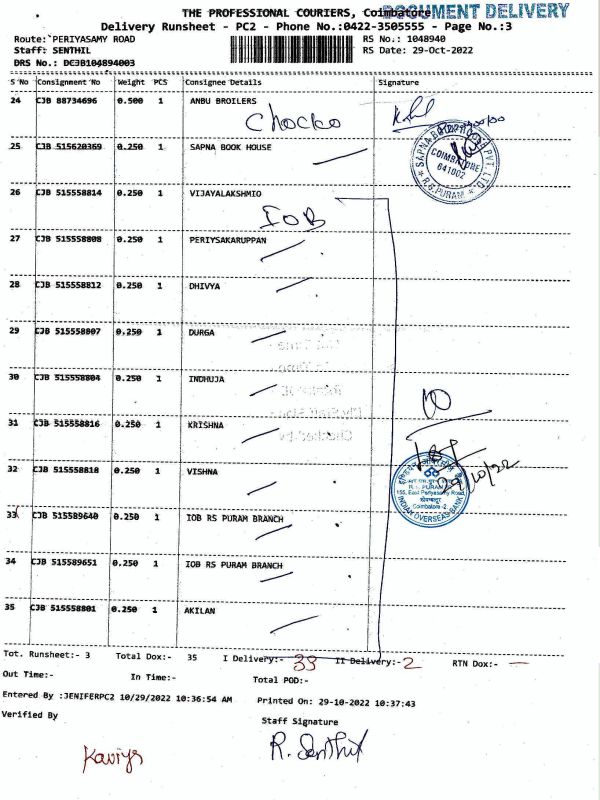 THE PROFESSIONAL COURIERS, Coimbatore
DOCUMENT DELIVERY
Delivery Runsheet - PC2 - Phone No.:0422-3505555 - Page No.:3
Route: PERIYASAMY ROAD RS No.: 1048940
Staff: SENTHIL RS Date: 29-Oct-2022
DRS No.: DCJB104894003
S No Consignment No Weight PCS Consignee Details Signature
24 CJB 88734696 0.500 1 ANBU BROILERS
Chocko
25 CJB 515620369 0.250 1 SAPNA BOOK HOUSE
COIMBATORE
641002
R.S.PURAM
26 CJB 515558814 0.250 1 VIJAYALAKSHMIO
IOB
27 CJB 515558808 0.250 1 PERIYSAKARUPPAN
28 CJB 515558812 0.250 1 DHIVYA
29 CJB 515558807 0.250 1 DURGA
30 CJB 515558804 0.250 1 INDHUJA
31 CJB 515558816 0.250 1 KRISHNA
32 CJB 515558818 0.250 1 VISHNA
29/10/22
155, East Periyasamy Road,
Coimbatore -2
INDIAN OVERSEAS BANK
33 CJB 515589640 0.250 1 IOB RS PURAM BRANCH
34 CJB 515589651 0.250 1 IOB RS PURAM BRANCH
35 CJB 515558801 0.250 1 AKILAN
Tot. Runsheet:- 3 Total Dox:- 35 I Delivery:- 33 II Delivery:- 2 RTN Dox:- —
Out Time:- In Time:- Total POD:-
Entered By :JENIFERPC2 10/29/2022 10:36:54 AM Printed On: 29-10-2022 10:37:43
Verified By Staff Signature
Kaviya R. Senthil